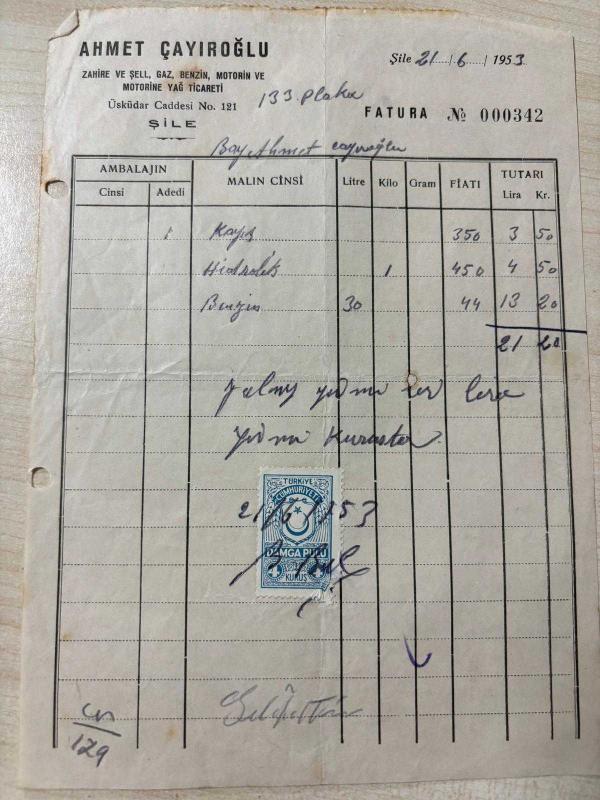 AHMET ÇAYIROĞLU
ZAHİRE VE ŞELL, GAZ, BENZİN, MOTORİN VE
MOTORİNE YAĞ TİCARETİ
Üsküdar Caddesi No. 121
ŞİLE
Şile 21/6/1953
133 Plaka
FATURA № 000342
Bay Ahmet Çayıroğlu
AMBALAJIN MALIN CİNSİ Litre Kilo Gram FİATI TUTARI
Cinsi Adedi Lira Kr.
1 Kayış 350 3 50
Hidrolik 1 450 4 50
Benzin 30 44 13 20
21 20
Yalnız yirmi bir lira
yirmi kuruştur
TÜRKİYE
CUMHURİYETİ
21/6/1953
DAMGA PULU
4 KURUŞ 4
129